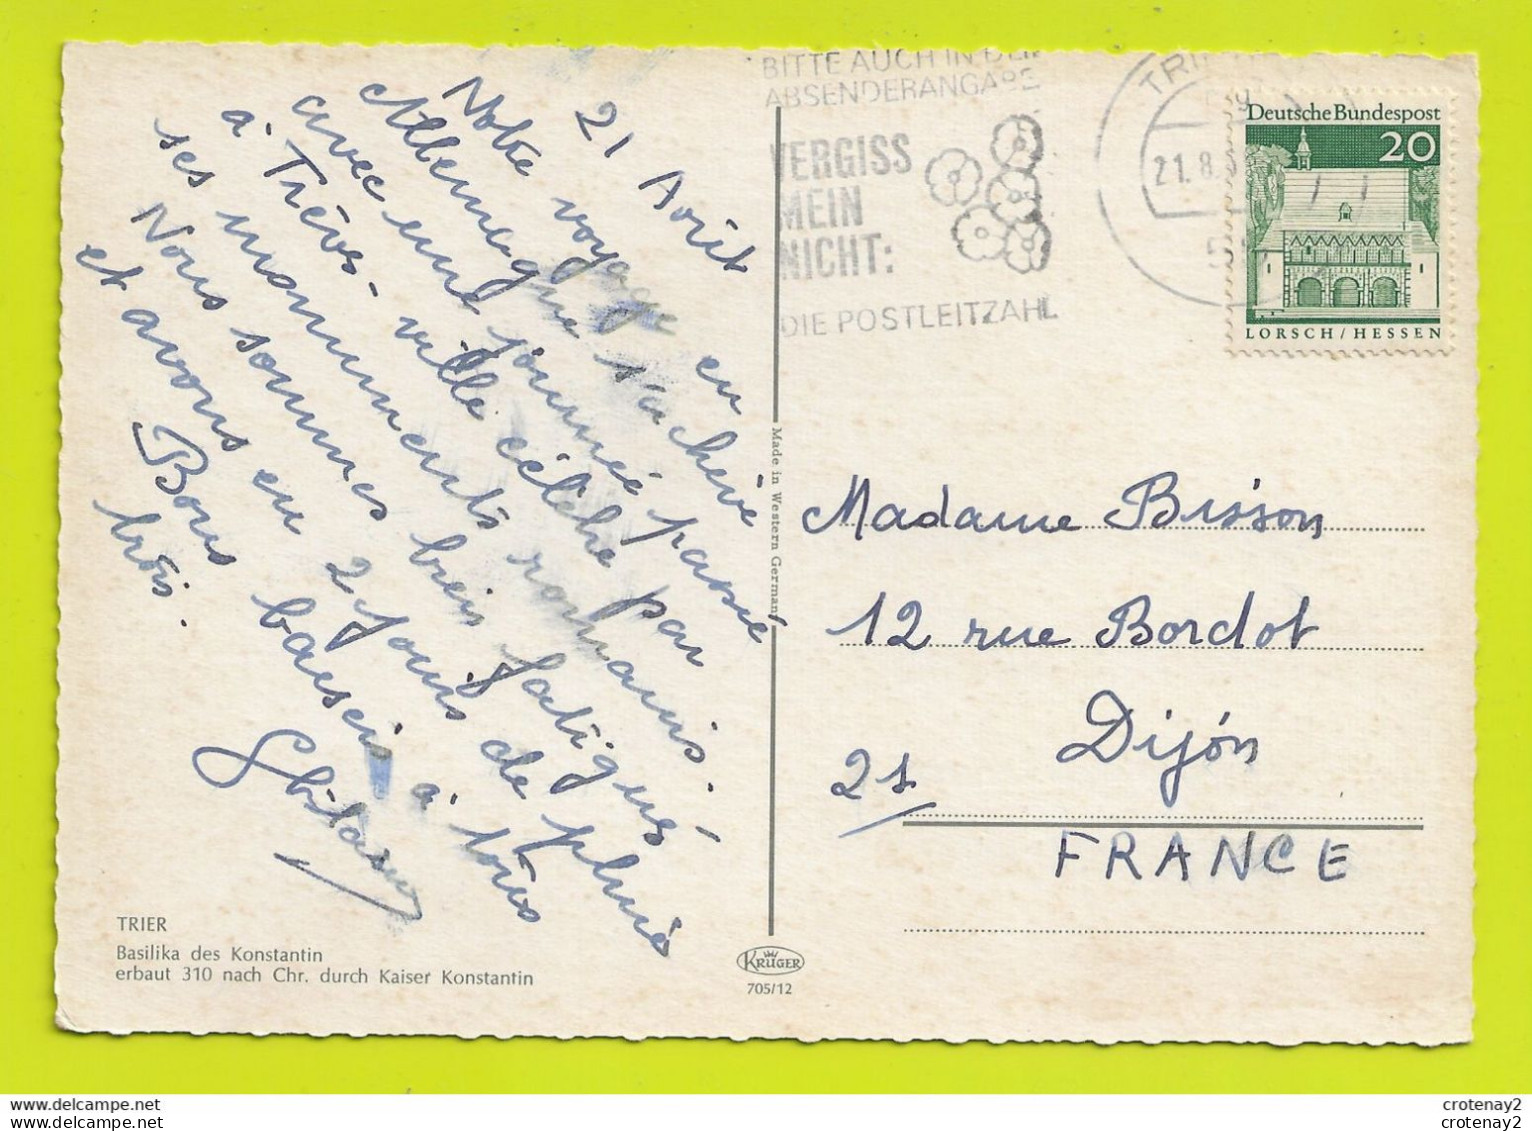 21 Août
Notre voyage en
Allemagne s'achève
avec une journée passée
à Trèves - ville célèbre par
ses monuments romains.
Nous sommes bien fatigués -
et avons eu 2 jours de pluie
Bons baisers à tous
trois.
TRIER
Basilika des Konstantin
erbaut 310 nach Chr. durch Kaiser Konstantin
Made in Western Germany
KRÜGER
705/12
BITTE AUCH IN DER
ABSENDERANGABE
VERGISS
MEIN
NICHT:
DIE POSTLEITZAHL
TRIER
21.8.
Deutsche Bundespost
20
LORSCH/HESSEN
Madame Bisson
12 rue Bordot
Dijon
21
FRANCE
crotenay2
crotenay2
crotenay2
crotenay2